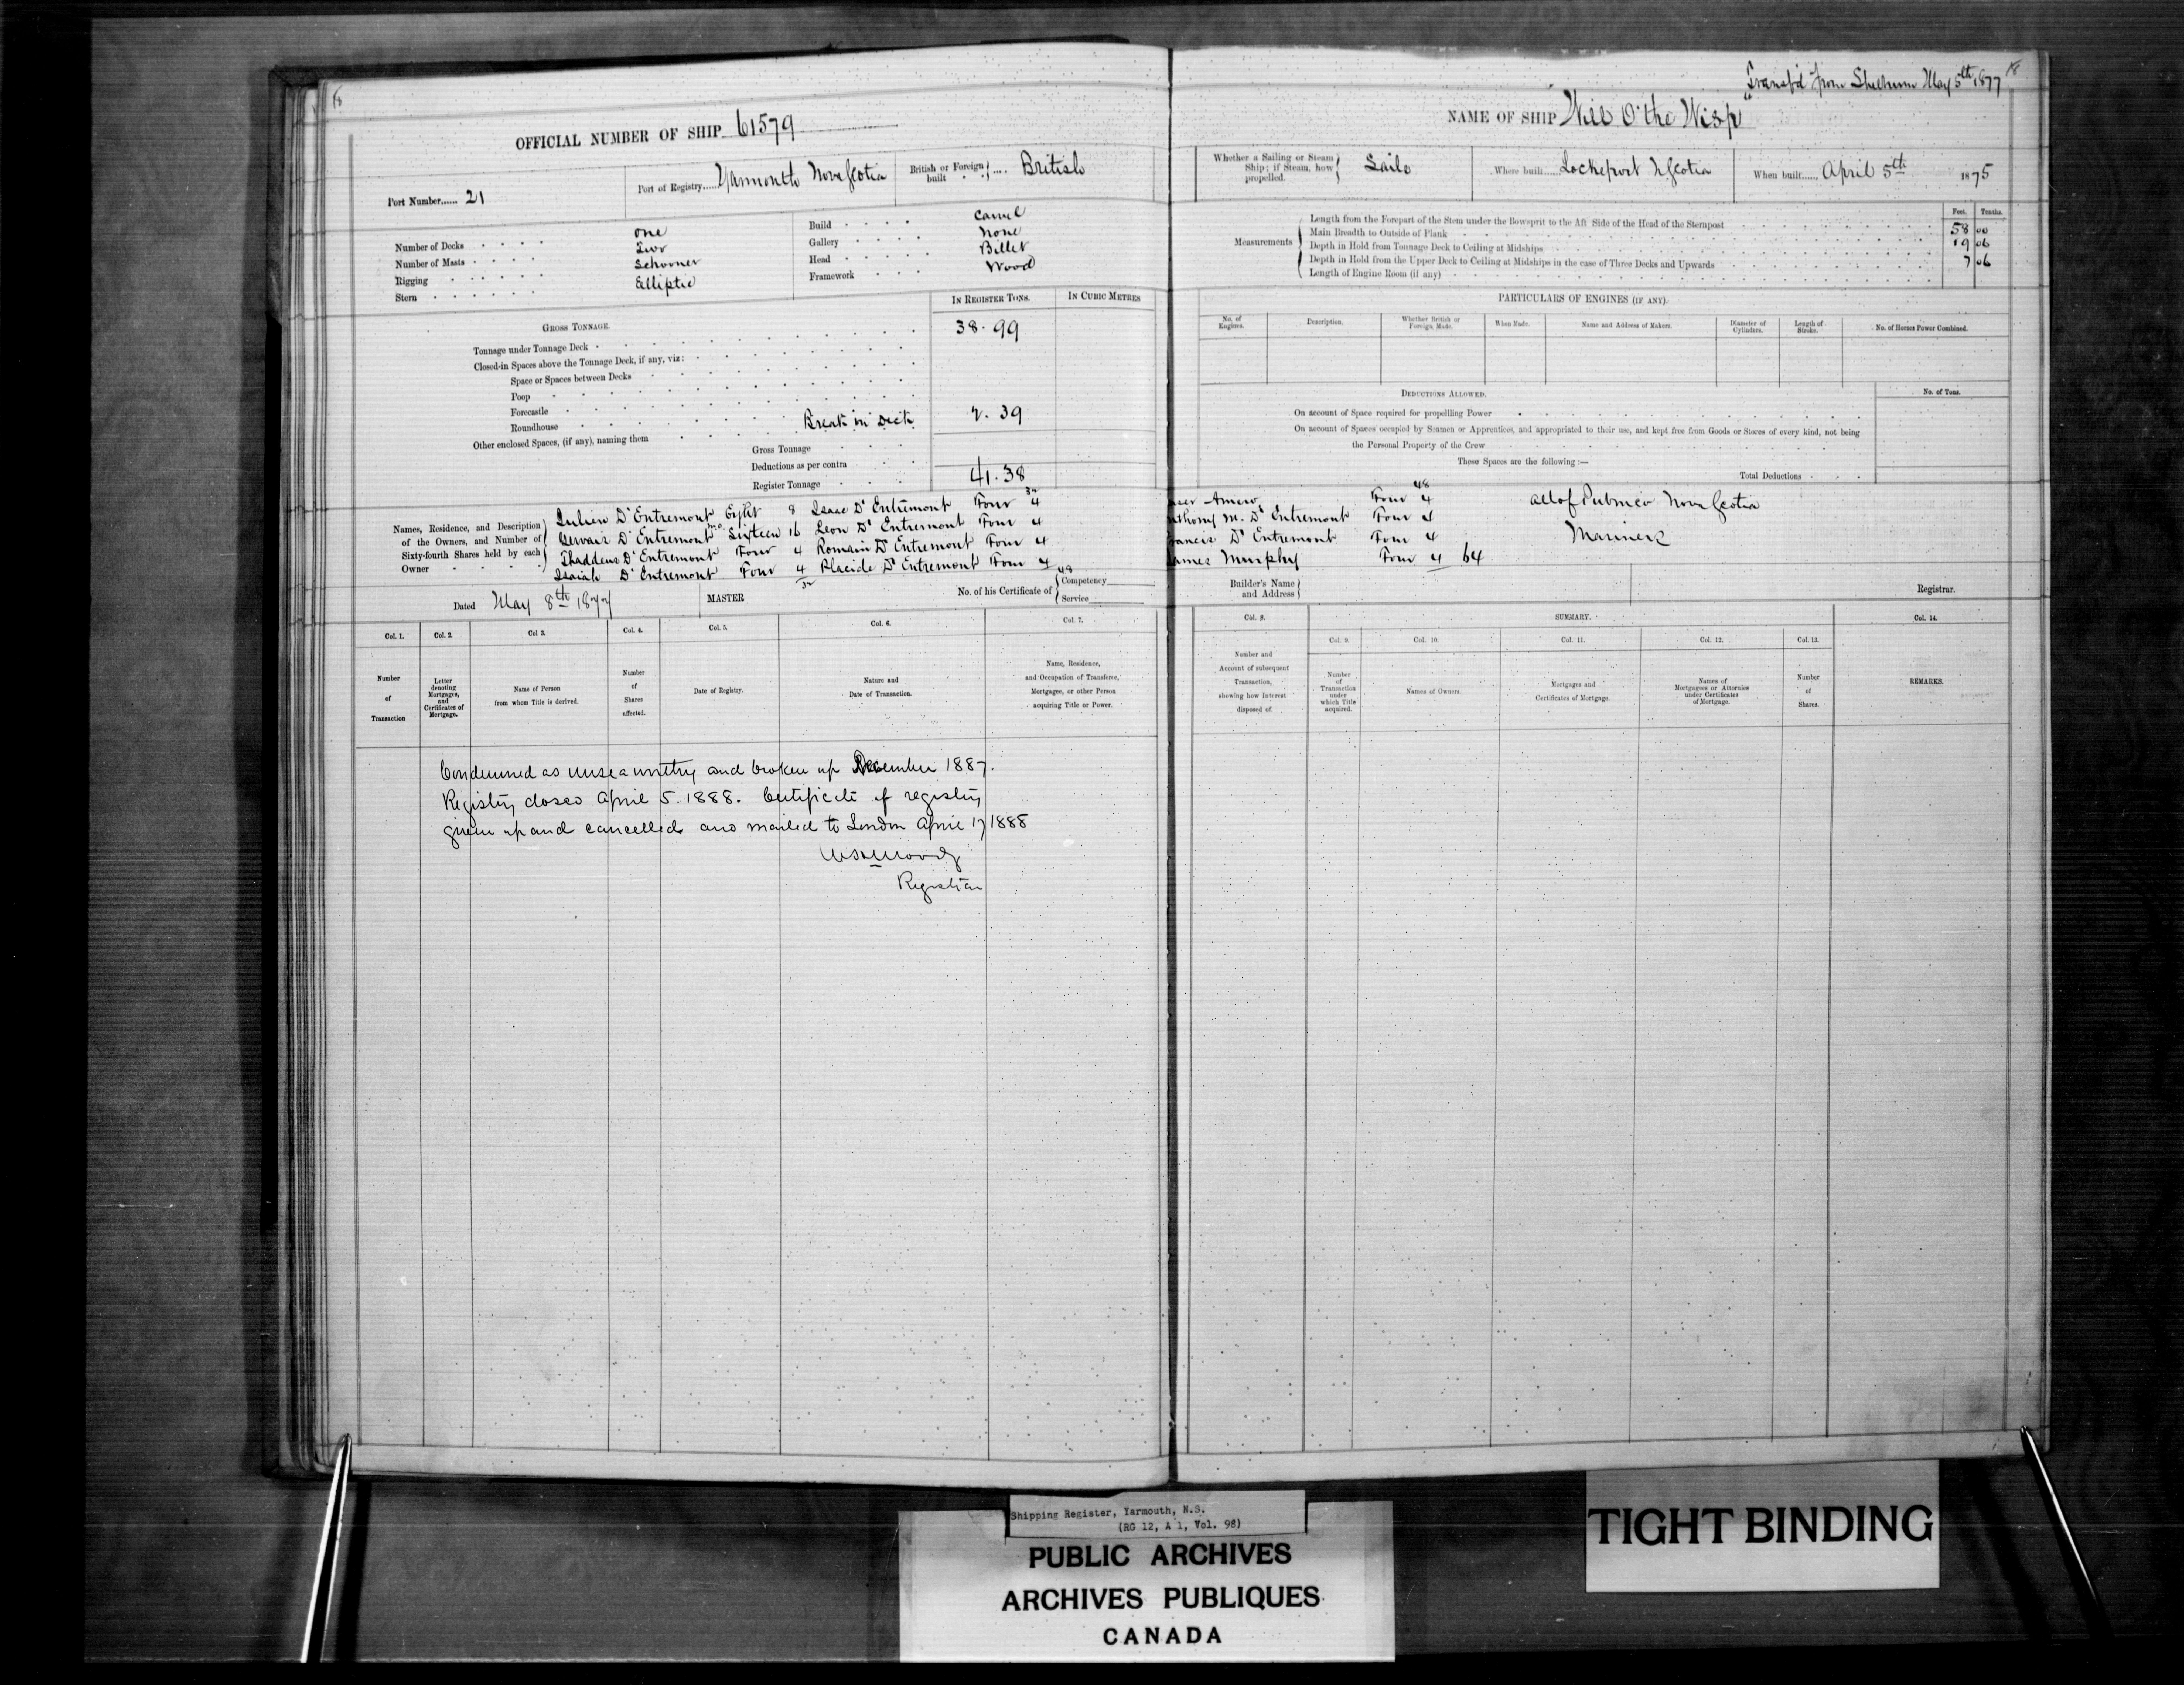 18
OFFICIAL NUMBER OF SHIP 61579
Port Number...... 21
Port of Registry..... Yarmouth Nova Scotia
British or Foreign built .... British
Number of Decks one
Number of Masts Two
Rigging Schooner
Stern Elliptic
Build Carvel
Gallery None
Head Billet
Framework Wood
IN REGISTER TONS.
IN CUBIC METRES
GROSS TONNAGE.
Tonnage under Tonnage Deck 38.99
Closed-in Spaces above the Tonnage Deck, if any, viz:
Space or Spaces between Decks
Poop
Forecastle
Roundhouse
Other enclosed Spaces, (if any), naming them Break in Deck 2.39
Gross Tonnage
Deductions as per contra
Register Tonnage 41.38
Names, Residence, and Description of the Owners, and Number of Sixty-fourth Shares held by each Owner
Julien D'Entremont Eight 8 Isaac D'Entremont Four 4
Gervais D'Entremont Sixteen 16 Leon D'Entremont Four 4
Thaddeus D'Entremont Four 4 Romain D'Entremont Four 4
Isaiah D'Entremont Four 4 Placide D'Entremont Four 4
32
48
Dated May 8th 1877
MASTER
No. of his Certificate of
Competency
Service
Col. 1.
Col. 2.
Col. 3.
Col. 4.
Col. 5.
Col. 6.
Col. 7.
Number of Transaction
Letter denoting Mortgages, and Certificates of Mortgage.
Name of Person from whom Title is derived.
Number of Shares affected.
Date of Registry.
Nature and Date of Transaction.
Name, Residence, and Occupation of Transferee, Mortgagee, or other Person acquiring Title or Power.
Condemned as unseaworthy and broken up December 1887.
Registry closed April 5. 1888. Certificate of registry
given up and cancelled and mailed to London April 17 1888
Moody
Registrar
Transf'd from Shelburne May 5th 1877
18
NAME OF SHIP "Will O'the Wisp"
Whether a Sailing or Steam Ship; if Steam, how propelled. Sails
Where built.... Lockeport N Scotia
When built..... April 5th 1875
Feet. Tenths.
Measurements
Length from the Forepart of the Stem under the Bowsprit to the Aft Side of the Head of the Sternpost 58 00
Main Breadth to Outside of Plank 19 06
Depth in Hold from Tonnage Deck to Ceiling at Midships 7 06
Depth in Hold from the Upper Deck to Ceiling at Midships in the case of Three Decks and Upwards
Length of Engine Room (if any)
PARTICULARS OF ENGINES (IF ANY).
No. of Engines.
Description.
Whether British or Foreign Made.
When Made.
Name and Address of Makers.
Diameter of Cylinders.
Length of Stroke.
No. of Horses Power Combined.
DEDUCTIONS ALLOWED.
No. of Tons.
On account of Space required for propelling Power
On account of Spaces occupied by Seamen or Apprentices, and appropriated to their use, and kept free from Goods or Stores of every kind, not being
the Personal Property of the Crew
These Spaces are the following:—
Total Deductions
48
Amero Four 4 all of Pubnico Nova Scotia
thony M. D'Entremont Four 4 Mariners
rancis D'Entremont Four 4
ames Murphy Four 4 64
Builder's Name and Address
Registrar.
Col. 8.
SUMMARY.
Col. 14.
Col. 9.
Col. 10.
Col. 11.
Col. 12.
Col. 13.
Number and Account of subsequent Transaction, showing how Interest disposed of.
Number of Transaction under which Title acquired.
Names of Owners.
Mortgages and Certificates of Mortgage.
Names of Mortgagees or Attornies under Certificates of Mortgage.
Number of Shares.
REMARKS.
Shipping Register, Yarmouth, N.S.
(RG 12, A 1, Vol. 98)
PUBLIC ARCHIVES
ARCHIVES PUBLIQUES
CANADA
TIGHT BINDING